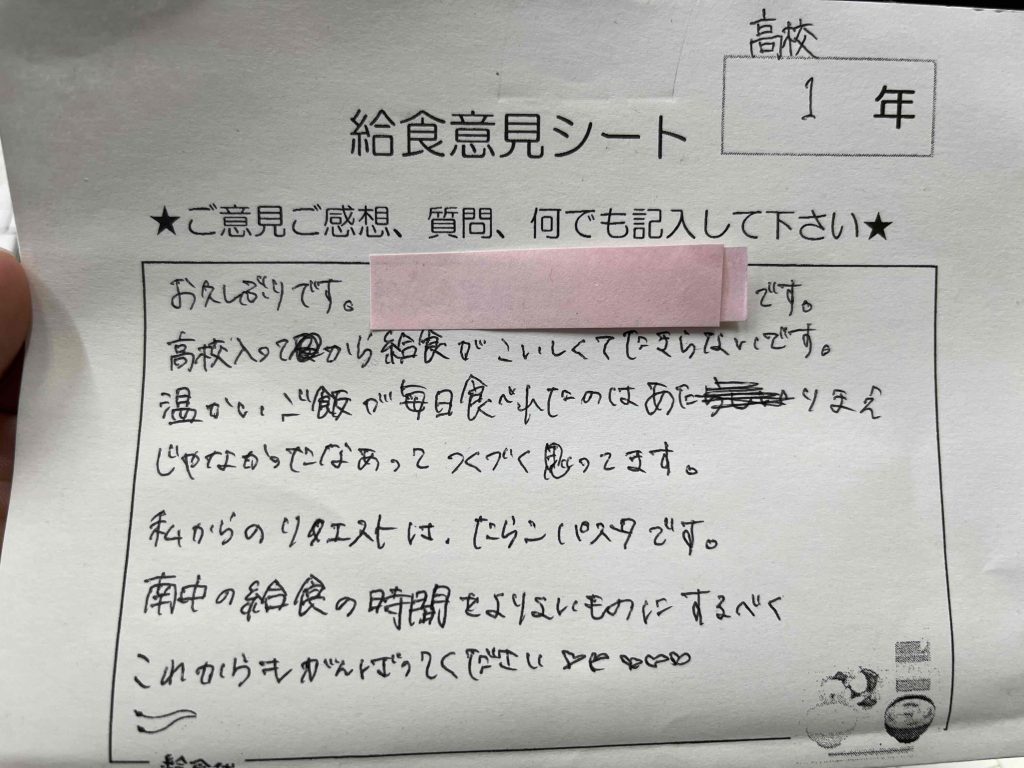 高校
1 年
給食意見シート
★ご意見ご感想、質問、何でも記入して下さい★
お久しぶりです。 です。
高校入ってから給食がこいしくてたまらないです。
温かいご飯が毎日食べれたのはあたりまえ
じゃなかったなあってつくづく思ってます。
私からのリクエストは、たらこパスタです。
南中の給食の時間をよりよいものにするべく
これからもがんばってください